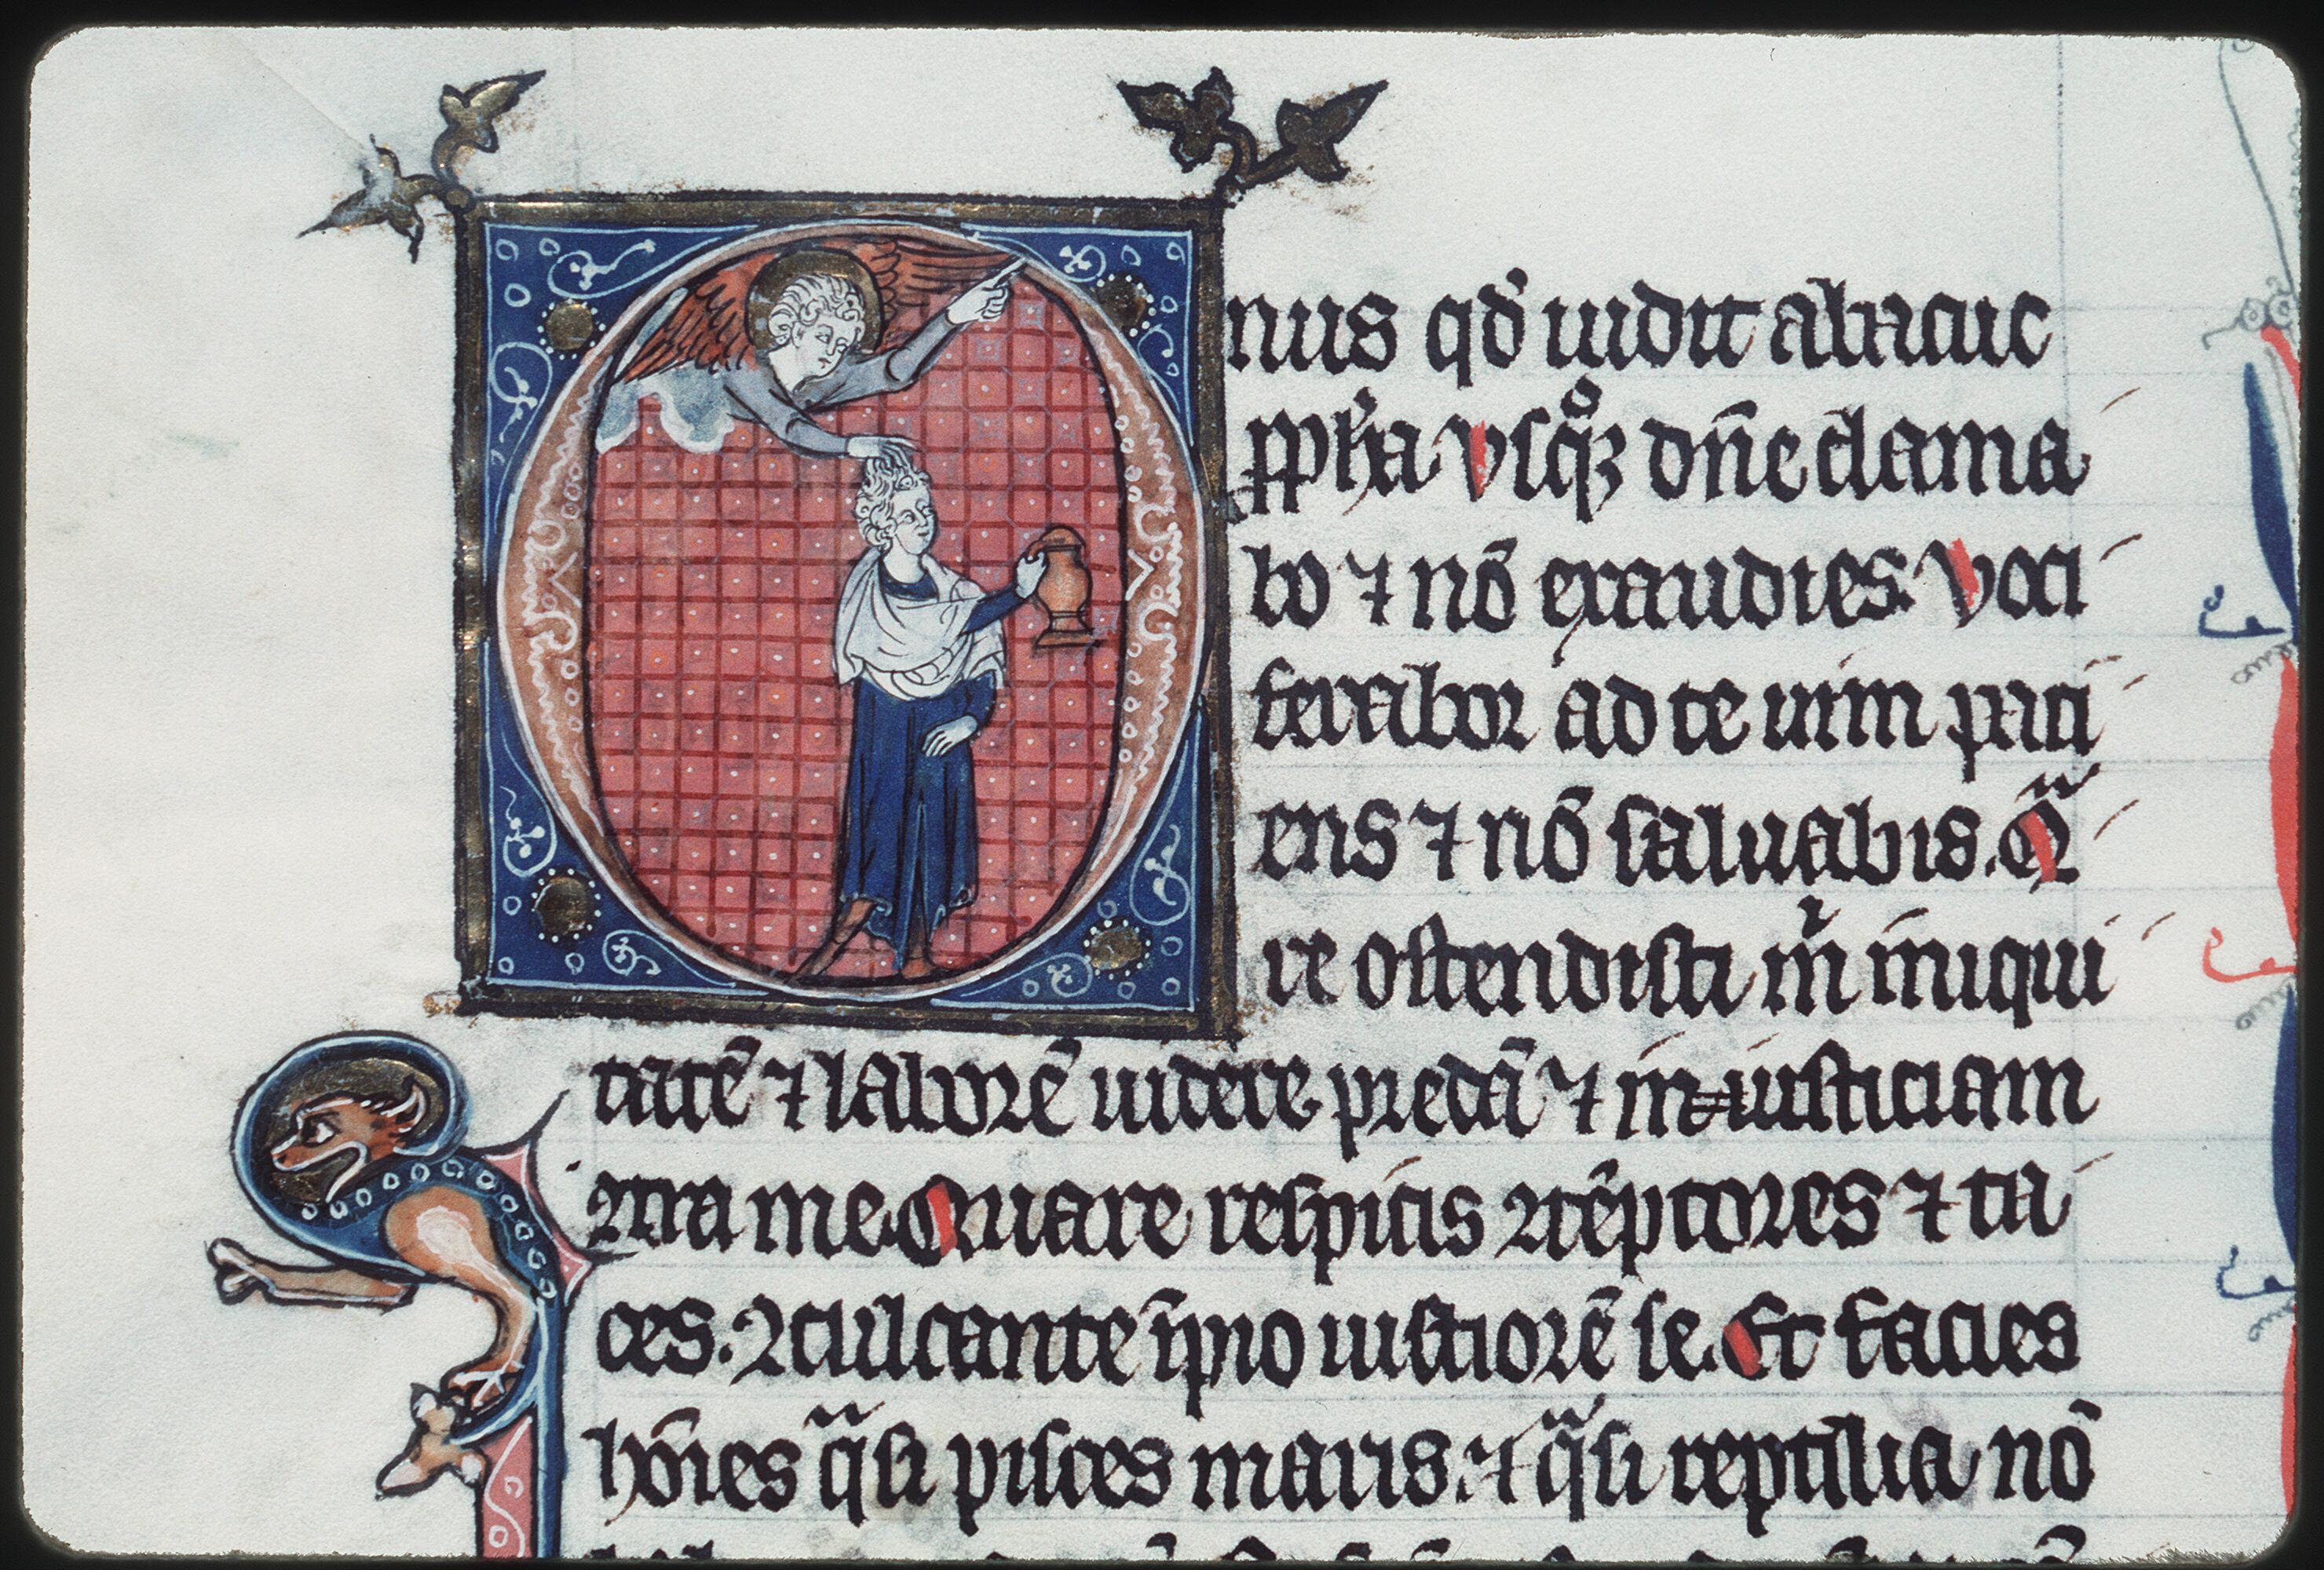 Onus qd̾ uidit abacuc
ꝓph̾a Vsq̊ꝫ dn̄e clama
bo ⁊ nō exaudies. Voci
ferabor ad te uim pati
ens ⁊ nō saluabis. Qͣ
re ostendisti m̾ iniqui
tatē ⁊ laborē uidere predā ⁊ in iusticiam
ꝯtra me. Quare respicis ꝯtēptores ⁊ ta
ces. ꝯculcante īpio iustiorē se. Et facies
hōies qͣsi pisces maris. ⁊ qͣsi reptilia nō